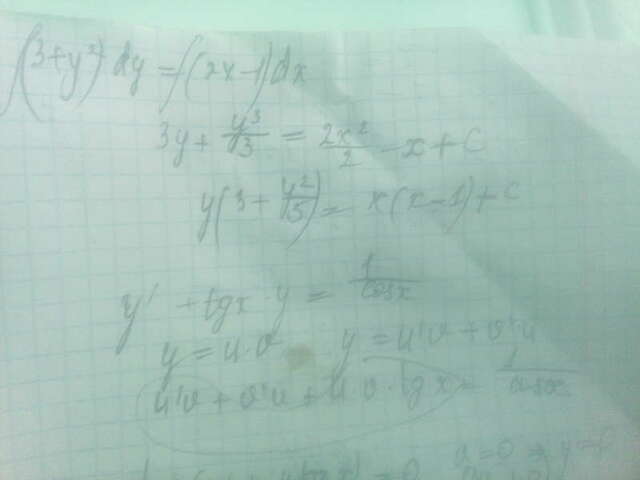 ∫(3+y²)dy = ∫(2x-1)dx
3y + y³/3 = 2x²/2 - x + C
y(3 + y²/3) = x(x-1) + C
y' + tgx·y = 1/cosx
y = u·v y = u'v + v'u
u'v + v'u + u v·tgx = 1/cosx